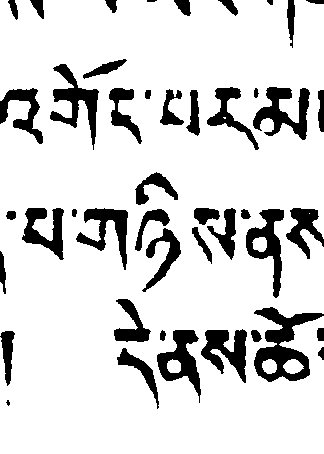 འགོང་པར་མ
པ་གཉིས་ནས
། དེ་ནས་ཆོ